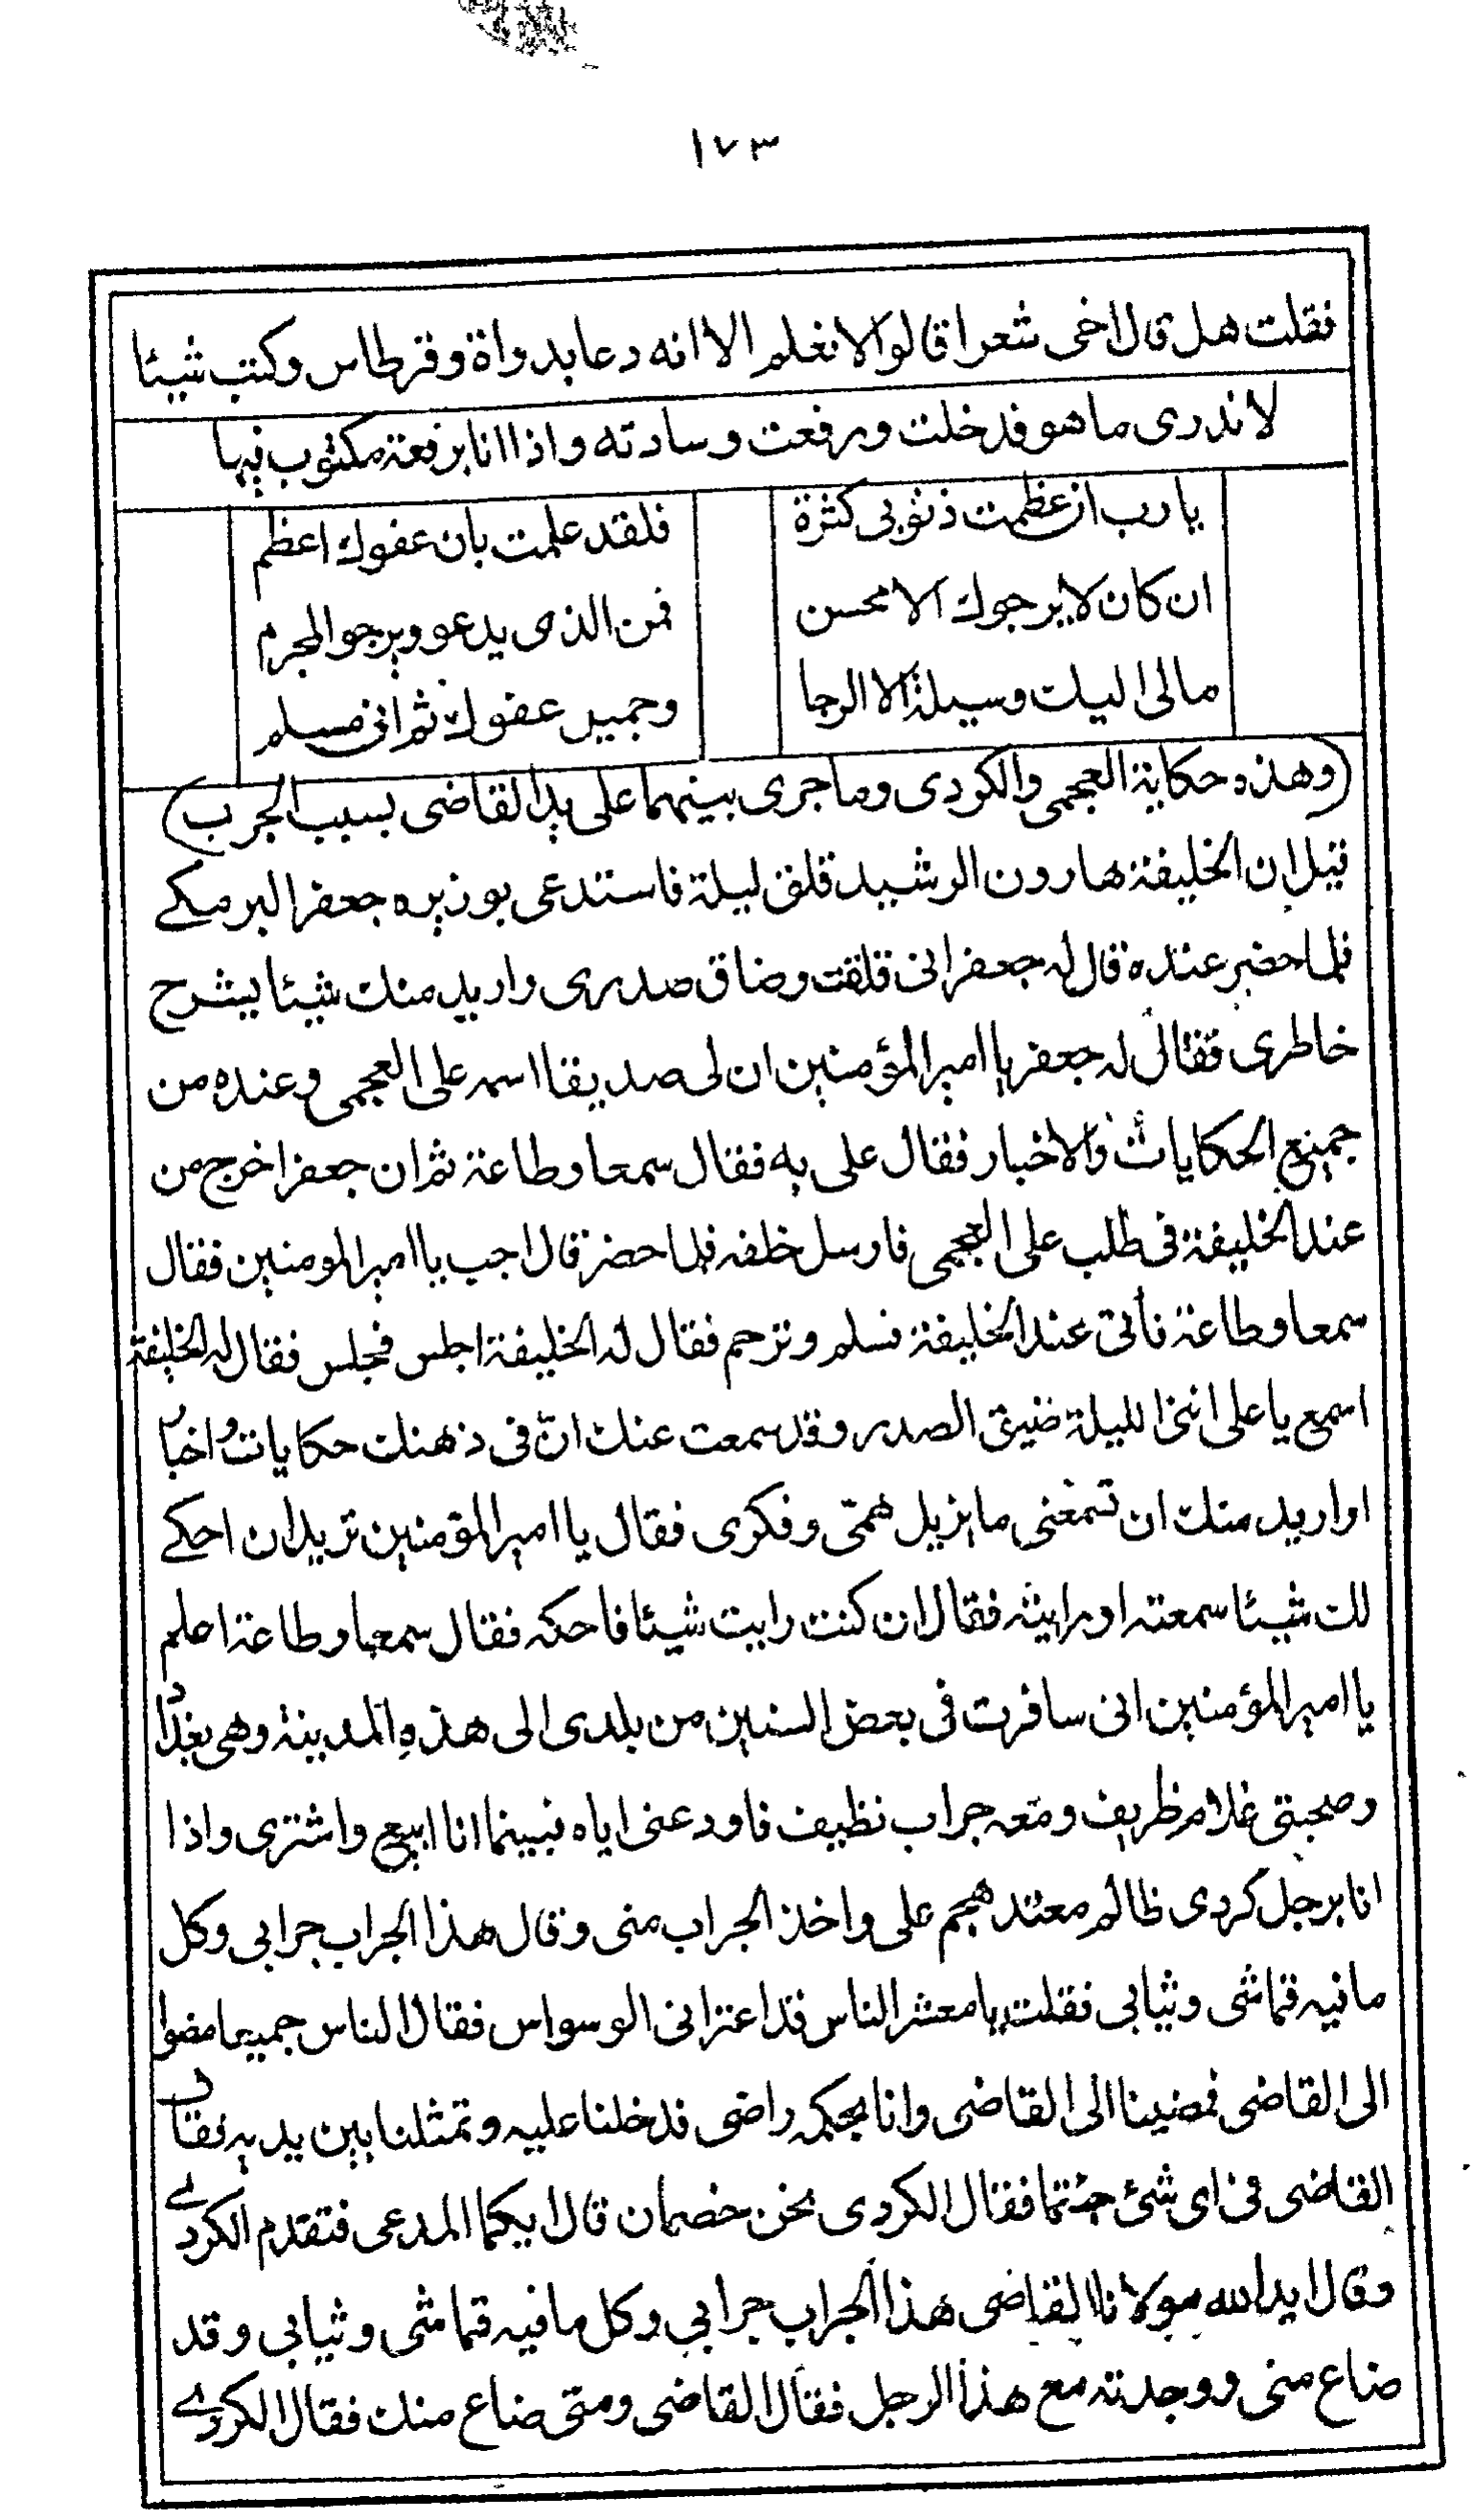 ١٧٣
فقلت هل قال اخى شعرا قالوا لا نعلم الا انه دعا بدواة وقرطاس وكتب شيئا
لا ندرى ما هو فدخلت ورفعت وسادته واذا انا برقعة مكتوب فيها
يا رب ان عظمت ذنوبى كثرة فلقد علمت بان عفوك اعظم
ان كان لا يرجوك الا محسن فمن الذى يدعو ويرجو المجرم
مالى اليك وسيلة الا الرجا وجميل عفوك ثم انى مسلم
(وهذه حكاية العجمى والكردى وما جرى بينهما على يد القاضى بسبب الجرب)
قيل ان الخليفة هارون الرشيد قلق ليلة فاستدعى بوزيره جعفر البرمكے
فلما حضر عنده قال له جعفر انى قلقت وضاق صدرى واريد منك شيئا يشرح
خاطرى فقال له جعفر يا امير المؤمنين ان لى صديقا اسمه على العجمى وعنده من
جميع الحكايات والاخبار فقال على به فقال سمعا وطاعة ثم ان جعفرا خرج من
عند الخليفة فى طلب على العجمى فارسل خلفه فلما حضر قال اجب يا امير المومنين فقال
سمعا وطاعة فأتى عند الخليفة فسلم وترحم فقال له الخليفة اجلس فجلس فقال له الخليفة
اسمع يا على اننى الليلة ضيق الصدر وقد سمعت عنك ان فى ذهنك حكايات واخبار
اواريد منك ان تسمعنى ما يزيل همّى وفكرى فقال يا امير المؤمنين تريد ان احكے
لك شيئا سمعته او رايته فقال ان كنت رايت شيئا فاحكه فقال سمعا وطاعة اعلم
يا امير المؤمنين انى سافرت فى بعض السنين من بلدى الى هذه المدينة وهى بغداد
وصحبتى غلام ظريف ومعه جراب نظيف فاودعنى اياه فبينما انا ابيع واشترى واذا
انا برجل كردى ظالم معتد هجم على واخذ الجراب منى وقال هذا الجراب جرابى وكل
ما فيه قماشى وثيابى فقلت يا معشر الناس قد اعترانى الوسواس فقال الناس جميعا مضوا
الى القاضى فمضينا الى القاضى وانا بحكمه راضى فدخلنا عليه وتمثلنا بين يديه فقال
القاضى فى اى شئ جئتما فقال الكردى نحن خصمان قال ايكما المدعى فتقدم الكردے
وقال ايد الله مولانا القاضى هذا الجراب جرابي وكل ما فيه قماشى وثيابى وقد
ضاع منى ووجدته مع هذا الرجل فقال القاضى ومتى ضاع منك فقال الكردے